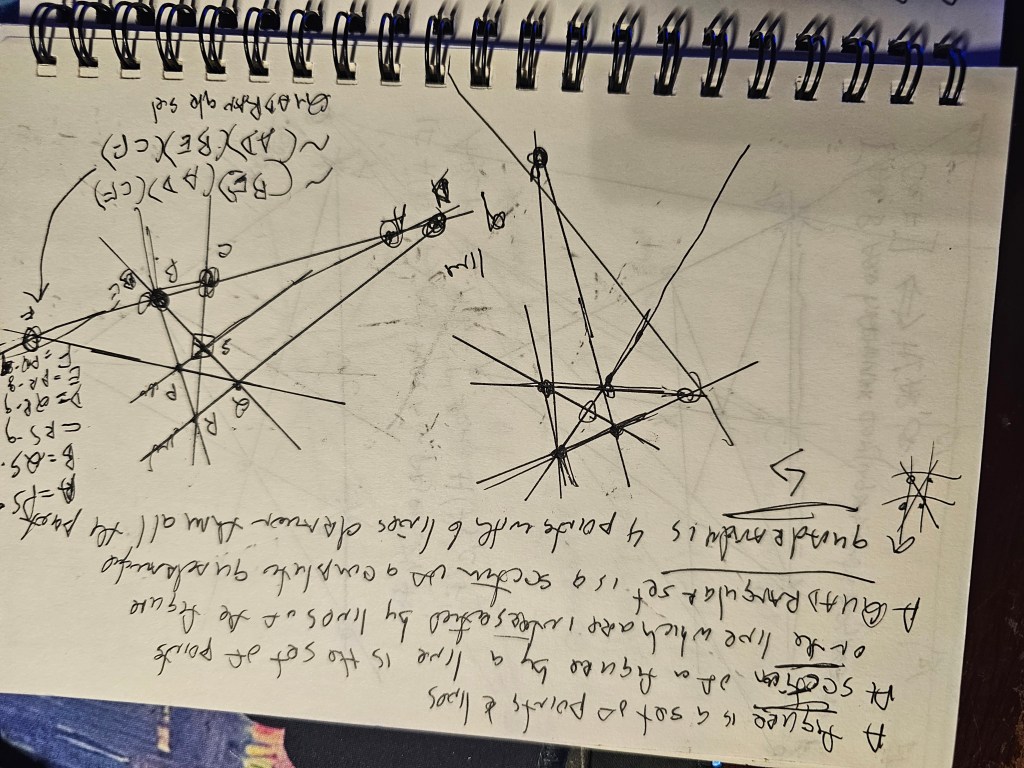 A figure is a set of points & lines
A section of a figure by a line is the set of points
on the line which are intersected by lines of the figure
A QUADRangular set is a section of a complete quadrangle
quadrangle is 4 points with 6 lines drawn all
A = PS
B = QS
C = RS - g
D = QR - g
E = PR - g
F = PQ - g
P
Q
R
S
A
B
C
E
F
line
~ (BE)(AD)(CF)
~ (AD)(BE)(CF)
QUADRangle set